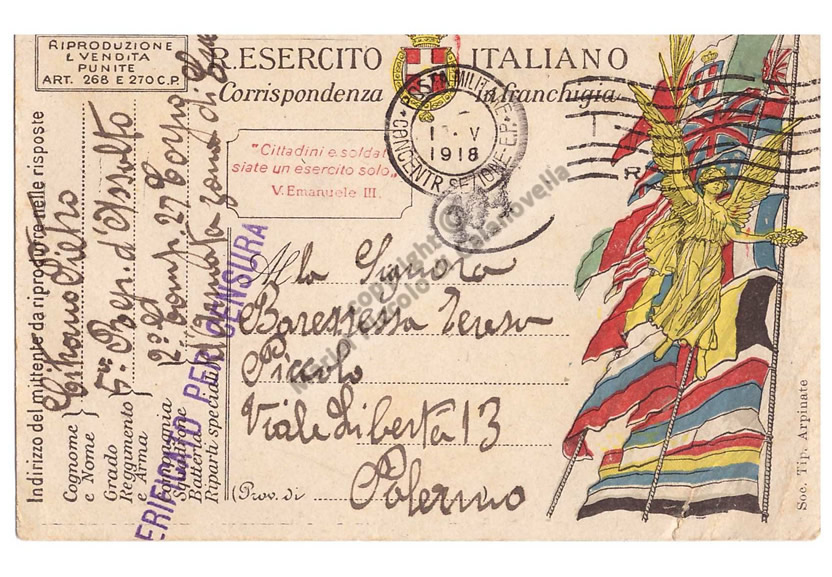 RIPRODUZIONE
E VENDITA
PUNITE
ART. 268 E 270 C.P.
R. ESERCITO ITALIANO
Corrispondenza in franchigia
POSTA MILITARE
CONCENTR. SEZIONE
V
1918
"Cittadini e soldati
siate un esercito solo„
V. Emanuele III.
Alla Signora
Baronessa Teresa
Piccolo
Viale Libertà 13
(Prov. di Palermo
Indirizzo del mittente da riprodurre nelle risposte
Cognome
e Nome
Pietro
Grado
Reggimento
e Arma
d'Assalto
Compagnia
Squadrone
Batteria
2ª Comp. 27 Corpo
Riparti speciali
Armata zona di
VERIFICATO PER CENSURA
Soc. Tip. Arpinate
copyright ©
Piccolo di Calanovella